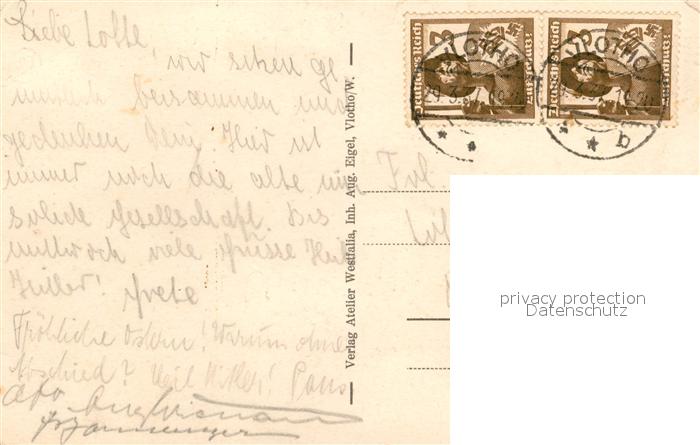 Liebe Lotte,
wir sitzen ge
mütlich beisammen und
gedenken Dein. Hier ist
immer noch die alte un
solide Gesellschaft. Bis
mittwoch viele Grüsse Heil
Hitler! Grete
Fröhliche Ostern! Warum ohne
Abschied? Heil Hitler!
Verlag Atelier Westfalia, Inh. Aug. Eigel, Vlotho/W.
Deutsches Reich 3
Deutsches Reich 3
VLOTHO
VLOTHO
b
Frl.
privacy protection
Datenschutz